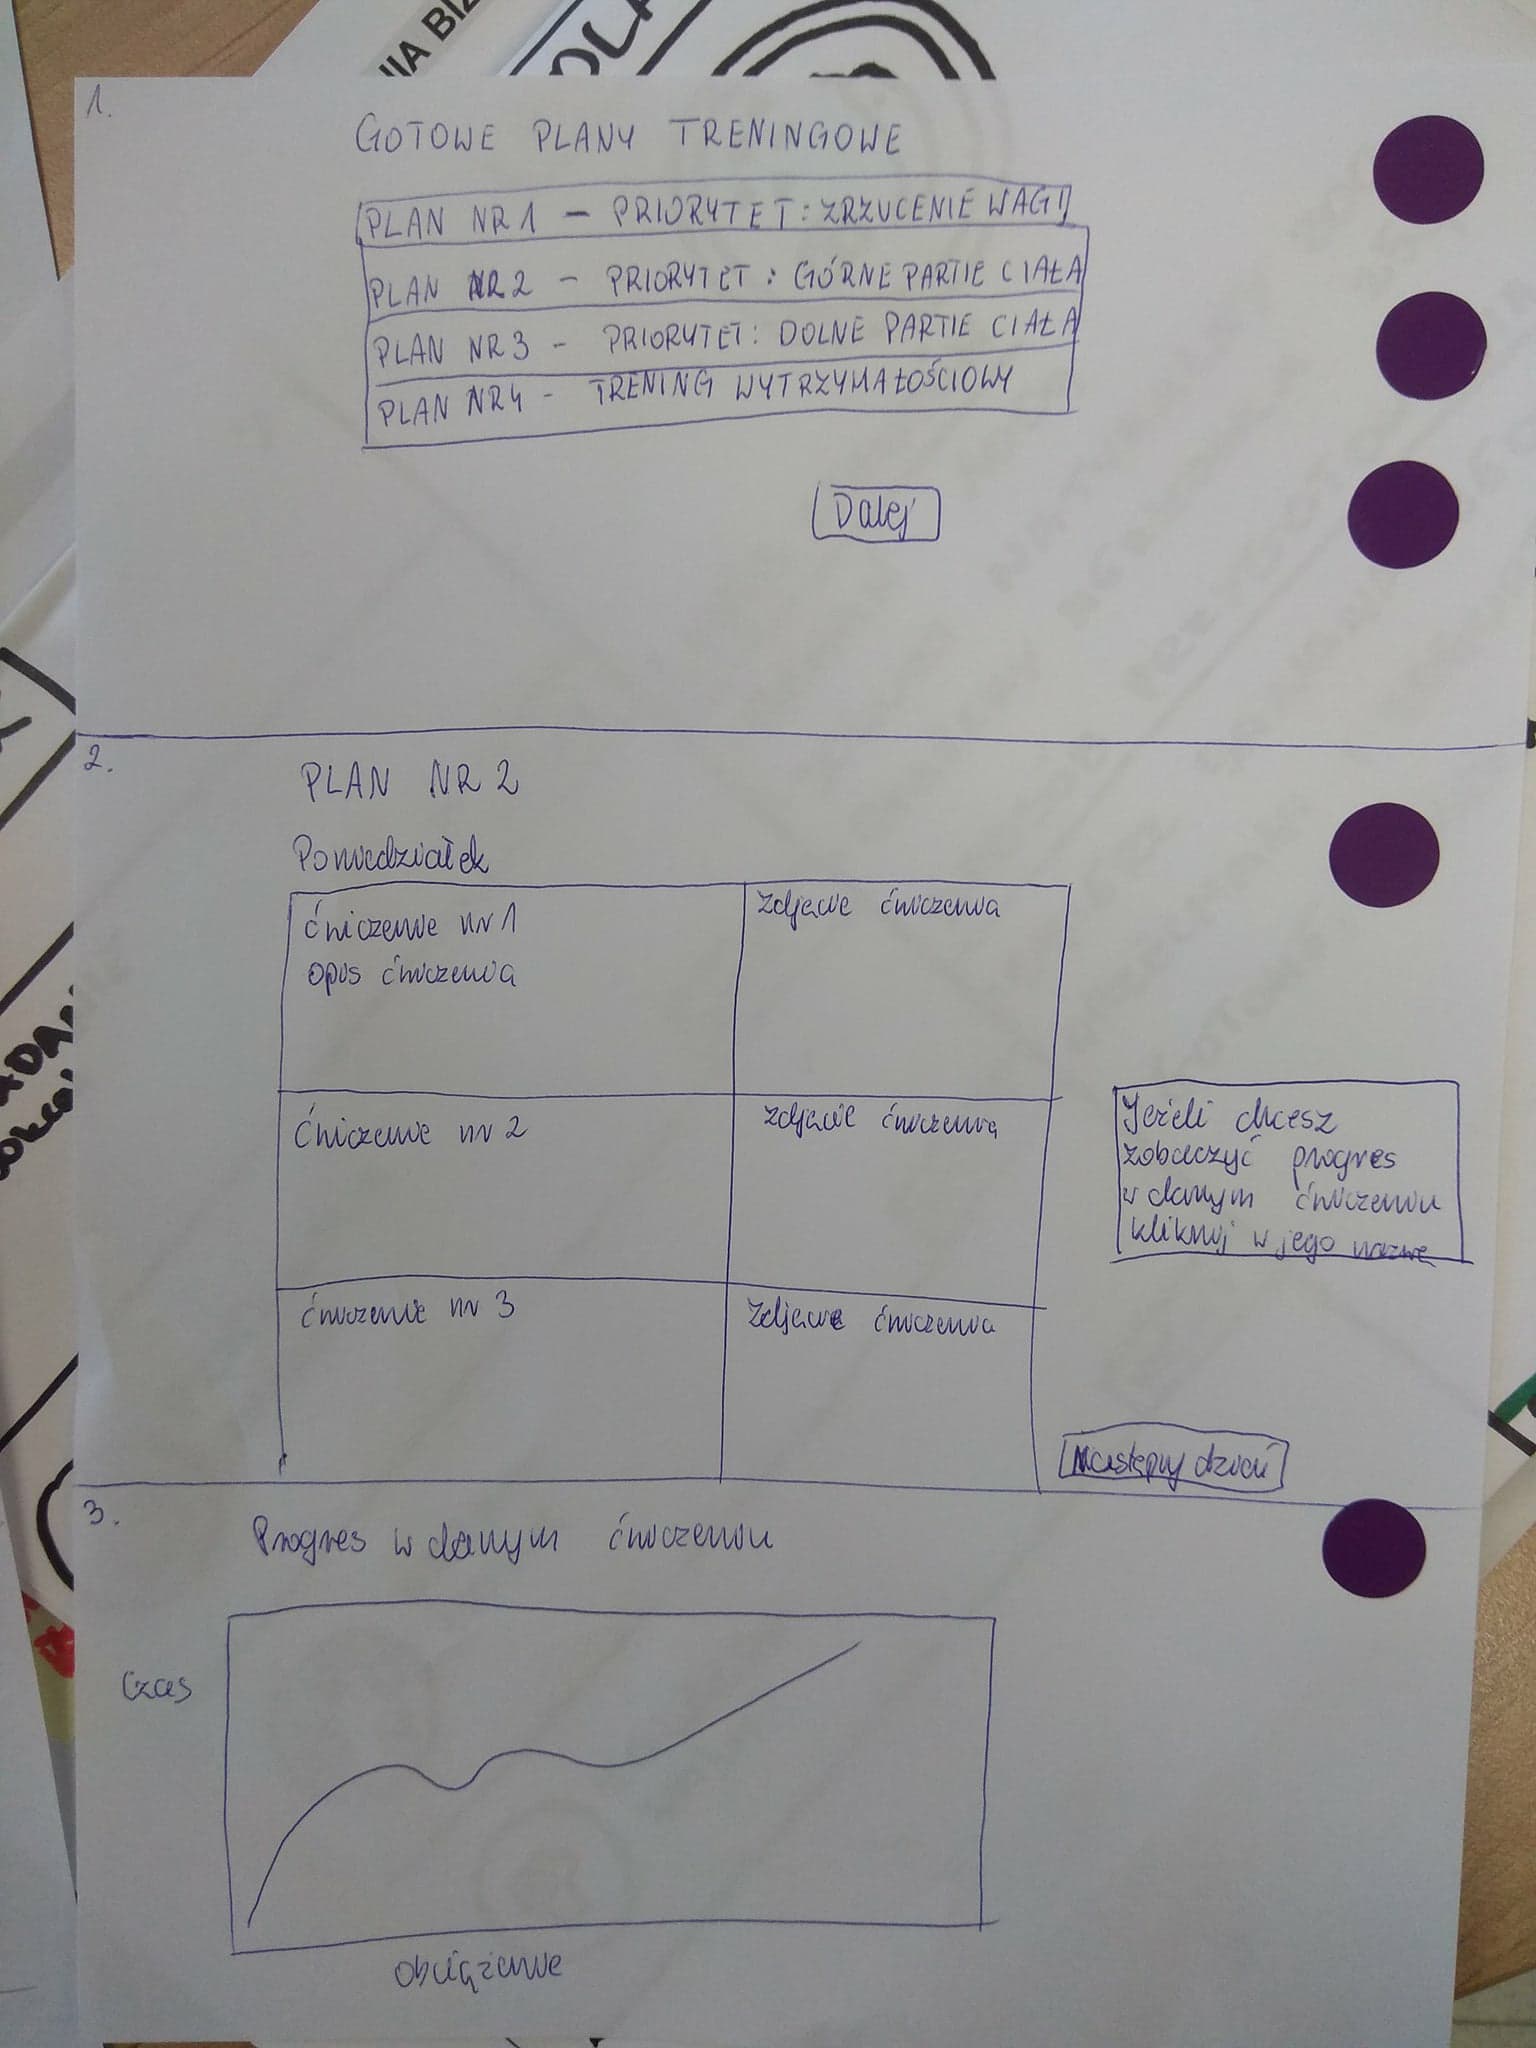 1.
GOTOWE PLANY TRENINGOWE
PLAN NR 1 – PRIORYTET: ZRZUCENIE WAGI
PLAN NR 2 – PRIORYTET: GÓRNE PARTIE CIAŁA
PLAN NR 3 – PRIORYTET: DOLNE PARTIE CIAŁA
PLAN NR 4 – TRENING WYTRZYMAŁOŚCIOWY
Dalej
2.
PLAN NR 2
Poniedziałek
ćwiczenie nr 1
zdjęcie ćwiczenia
opis ćwiczenia
Ćwiczenie nr 2
zdjęcie ćwiczenia
Jeżeli chcesz
zobaczyć progres
w danym ćwiczeniu
kliknij w jego nazwę
ćwiczenie nr 3
zdjęcie ćwiczenia
Następny dzień
3.
Progres w danym ćwiczeniu
Czas
Obciążenie